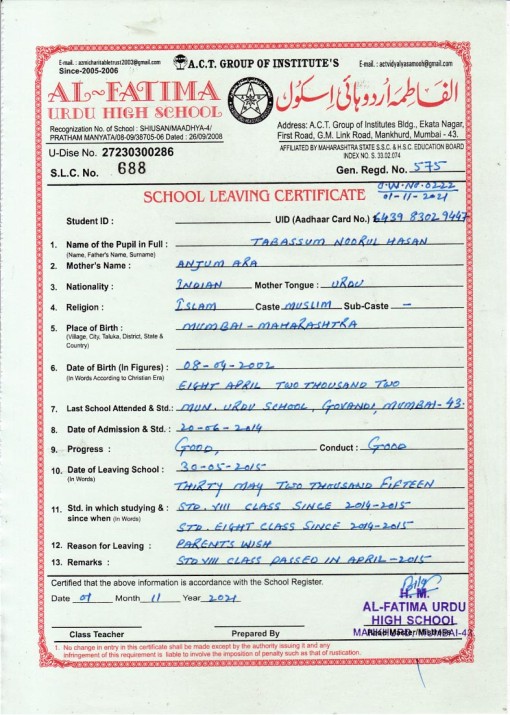 E-mail. : asmicharitabletrust2003@gmail.com
A.C.T. GROUP OF INSTITUTE'S
E-mail. : actvidyalyasamooh@gmail.com
Since-2005-2006
AL~FATIMA
URDU HIGH SCHOOL
الفاطمہ اردو ہائی اسکول
Recognization No. of School : SHIUSAN/MAADHYA-4/
PRATHAM MANYATA/08-09/38705-06 Dated : 26/09/2008
Address: A.C.T. Group of Institutes Bldg., Ekata Nagar,
First Road, G.M. Link Road, Mankhurd, Mumbai - 43.
U-Dise No. 27230300286
AFFILIATED BY MAHARASHTRA STATE S.S.C. & H.S.C. EDUCATION BOARD
INDEX NO. S. 33.02.074
S.L.C. No. 688
Gen. Regd. No. 575
SCHOOL LEAVING CERTIFICATE
O.W.NO.0222
01-11-2021
Student ID : UID (Aadhaar Card No.) 6439 8302 9447
1. Name of the Pupil in Full : TABASSUM NOORUL HASAN
(Name, Father's Name, Surname)
2. Mother's Name : ANJUM ARA
3. Nationality : INDIAN Mother Tongue : URDU
4. Religion : ISLAM Caste MUSLIM Sub-Caste -
5. Place of Birth : MUMBAI - MAHARASHTRA
(Village, City, Taluka, District, State &
Country)
6. Date of Birth (In Figures) : 08-04-2002
(In Words According to Christian Era)
EIGHT APRIL TWO THOUSAND TWO
7. Last School Attended & Std.: MUN. URDU SCHOOL, GOVANDI, MUMBAI-43.
8. Date of Admission & Std. : 20-06-2014
9. Progress : GOOD, Conduct : GOOD
10. Date of Leaving School : 30-05-2015
(In Words)
THIRTY MAY TWO THOUSAND FIFTEEN
11. Std. in which studying & : STD. VIII CLASS SINCE 2014-2015
since when (In Words)
STD. EIGHT CLASS SINCE 2014-2015
12. Reason for Leaving : PARENTS WISH
13. Remarks : STD VIII CLASS PASSED IN APRIL-2015
Certified that the above information is accordance with the School Register.
Date 01 Month 11 Year 2021
H. M.
AL-FATIMA URDU
HIGH SCHOOL
Class Teacher
Prepared By
1. No change in entry in this certificate shall be made except by the authority issuing it and any
infringement of this requirement is liable to involve the imposition of penalty such as that of rustication.